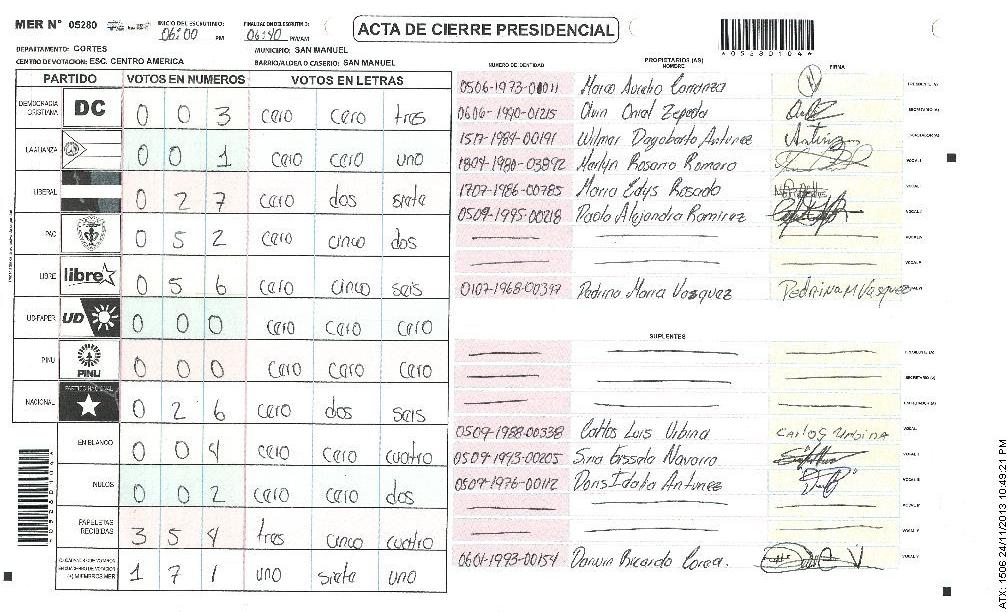 MER N° 05280 INICIO DEL ESCRUTINIO: 06:00 PM FINALIZACION DEL ESCRUTINIO: 06:40 PM/AM ACTA DE CIERRE PRESIDENCIAL *05280104*
DEPARTAMENTO: CORTES MUNICIPIO: SAN MANUEL
CENTRO DE VOTACION: ESC. CENTRO AMERICA BARRIO/ALDEA O CASERIO: SAN MANUEL
PARTIDO VOTOS EN NUMEROS VOTOS EN LETRAS
DEMOCRACIA CRISTIANA DC 0 0 3 cero cero tres
LA ALIANZA 0 0 1 cero cero uno
LIBERAL 0 2 7 cero dos siete
PAC 0 5 2 cero cinco dos
LIBRE libre 0 5 6 cero cinco seis
UD-FAPER UD 0 0 0 cero cero cero
PINU PINU 0 0 0 cero cero cero
NACIONAL PARTIDO NACIONAL 0 2 6 cero dos seis
EN BLANCO 0 0 4 cero cero cuatro
NULOS 0 0 2 cero cero dos
PAPELETAS RECIBIDAS 3 5 4 tres cinco cuatro
MIEMBROS MER 1 7 1 uno siete uno
PROPIETARIOS (AS)
NUMERO DE IDENTIDAD NOMBRE FIRMA
0506-1973-00011 Marco Aurelio Carranza PRESIDENTE (A)
0606-1990-01215 Olvin Oniel Zepeda SECRETARIO (A)
1517-1984-00191 Wilmer Dagoberto Antunez Antunez ESCRUTADOR (A)
1804-1980-03892 Merlyn Rosario Romero VOCAL I
1707-1986-00785 Maria Edys Rosado VOCAL
0509-1995-00218 Paola Alejandra Ramirez VOCAL
0107-1968-00397 Pedrina Maria Vasquez Pedrina M Vasquez
SUPLENTES
PRESIDENTE (A)
SECRETARIO (A)
ESCRUTADOR (A)
0509-1988-00338 Carlos Luis Urbina Carlos Urbina VOCAL
0509-1993-00205 Sina Gissela Navarro VOCAL
0509-1976-00112 Doris Idalia Antunez VOCAL
0601-1993-00154 Darwin Ricardo Corea. VOCAL
ATX: 1506 24/11/2013 10:49:21 PM